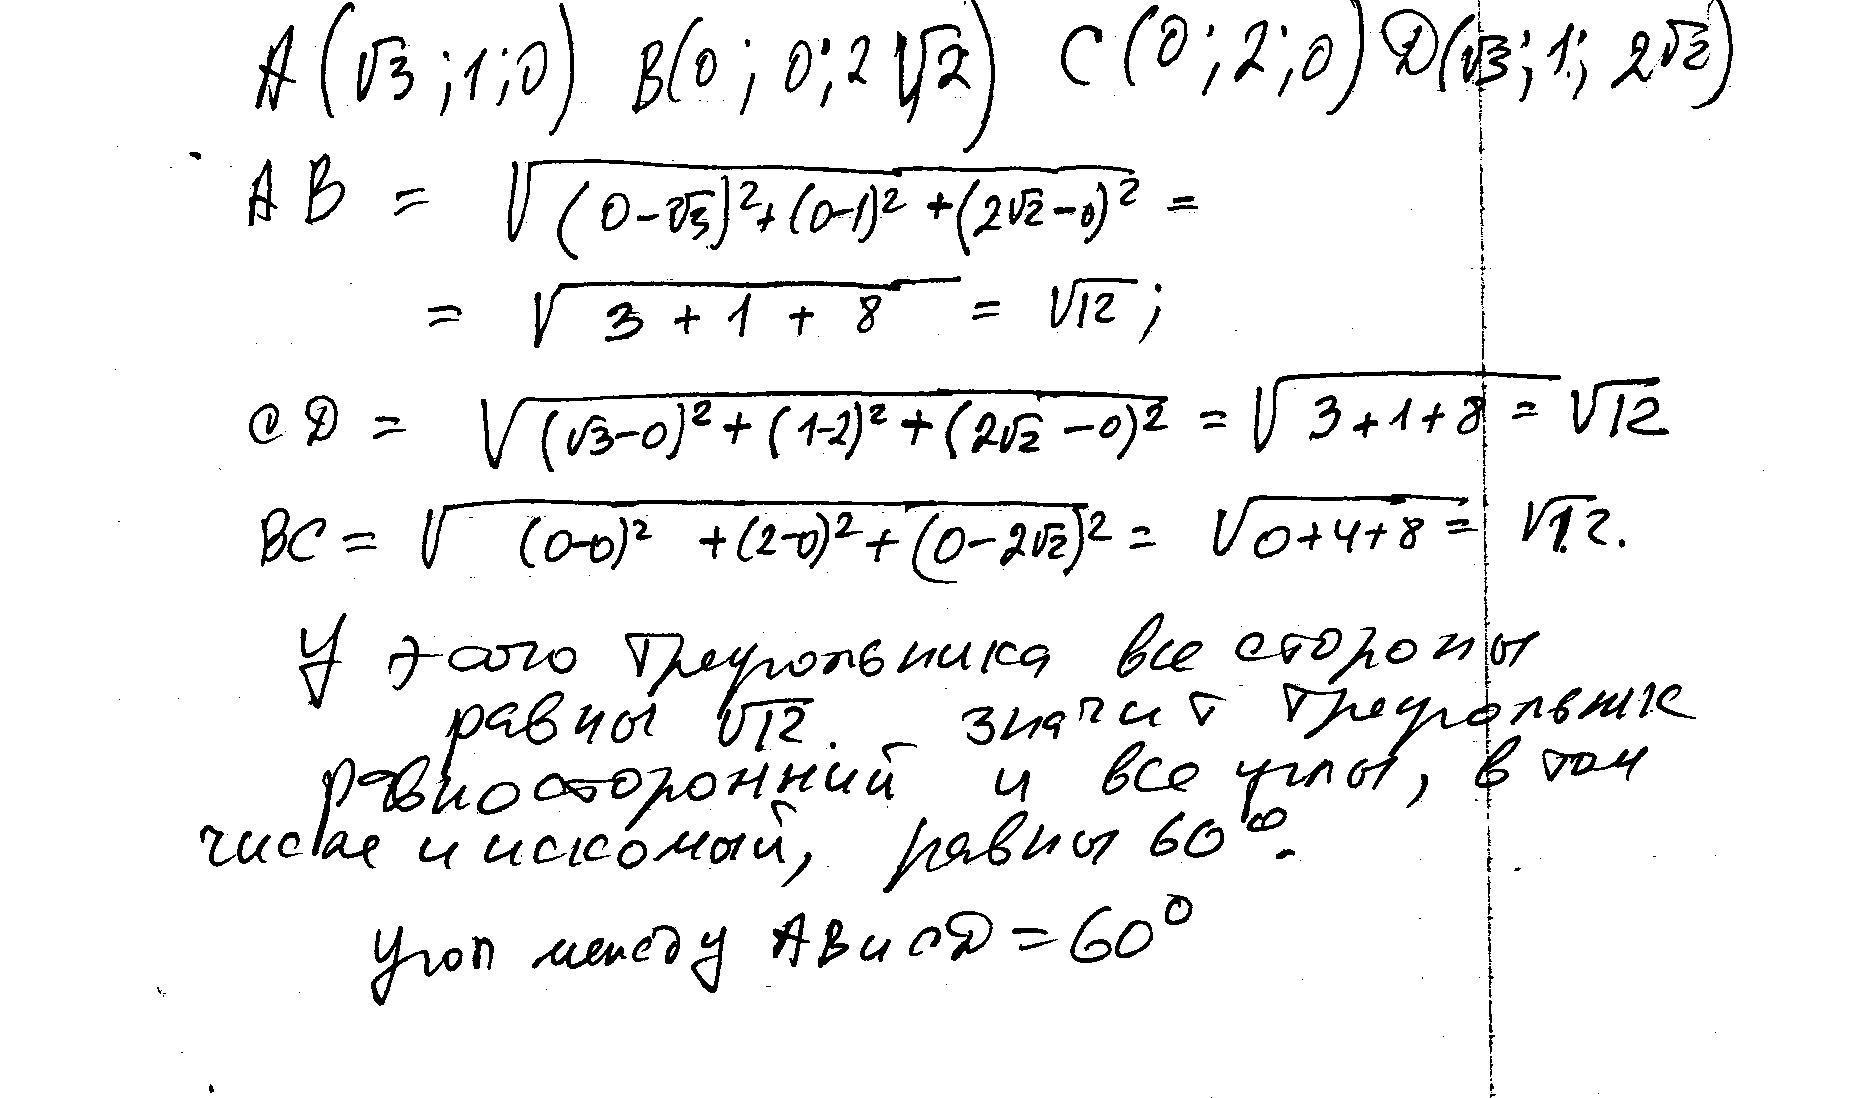 A(√3;1;0) B(0;0;2√2) C(0;2;0) D(√3;1;2√2)
AB = √((0-√3)²+(0-1)²+(2√2-0)²) =
= √(3+1+8) = √12;
CD = √((√3-0)²+(1-2)²+(2√2-0)²) = √(3+1+8) = √12
BC = √((0-0)²+(2-0)²+(0-2√2)²) = √(0+4+8) = √12.
У этого треугольника все стороны
равны √12. значит треугольник
равносторонний и все углы, в том
числе и искомый, равны 60°.
Угол между AB и CD = 60°